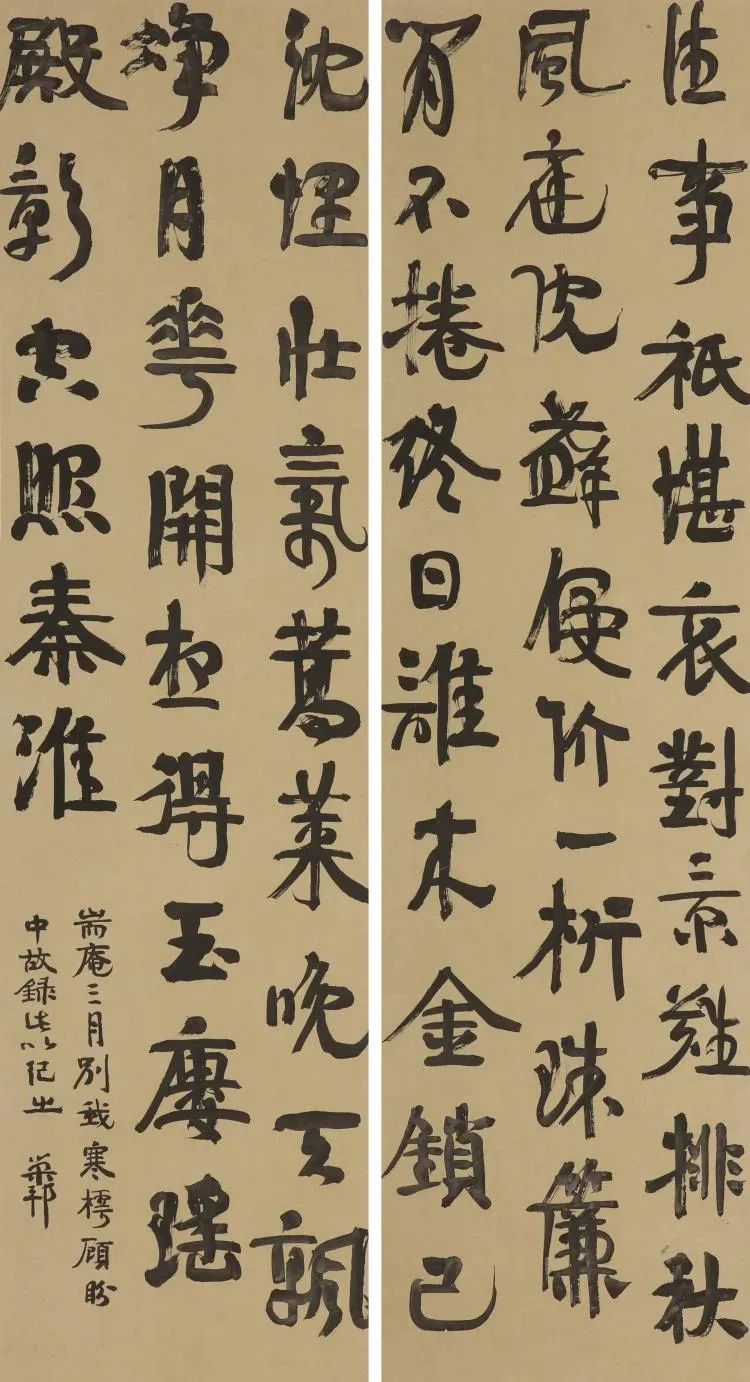 往事祇堪哀對景難排秋
風庭院蘚侵階一桁珠簾
閒不捲終日誰來金鎖已
沈埋壯氣蒿萊晚天涼
淨月華開想得玉廔瑤
殿影空照秦淮
耑庵三月別我寒樗顧盼
中故錄此以紀之